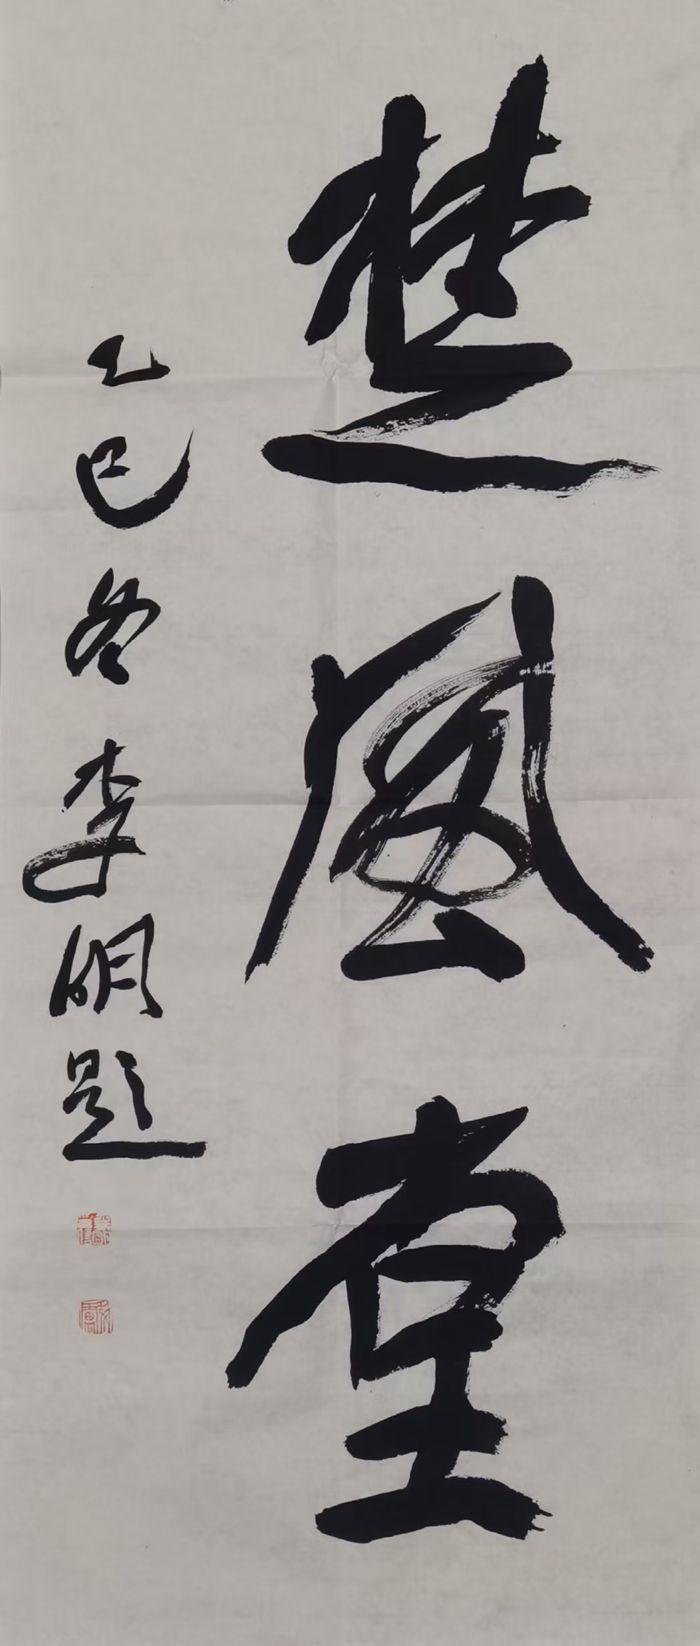 楚風堂
乙巳冬李明题